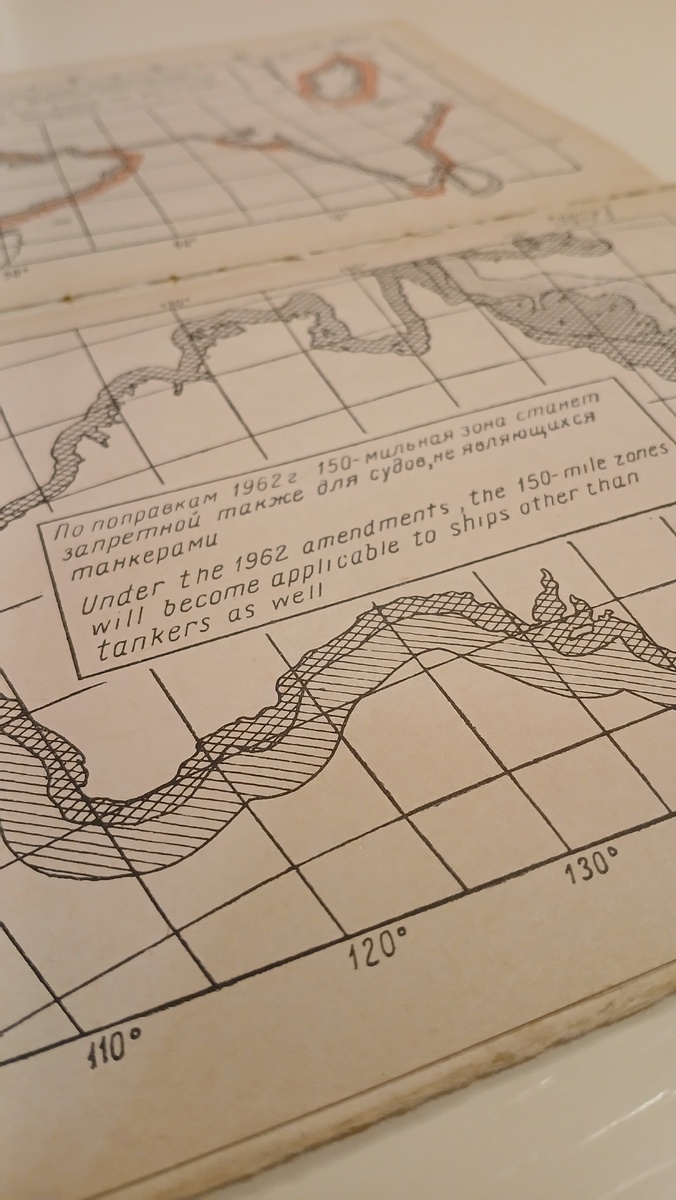 По поправкам 1962 г 150-мильная зона станет
запретной также для судов, не являющихся
танкерами
Under the 1962 amendments, the 150-mile zones
will become applicable to ships other than
tankers as well
130°
120°
110°